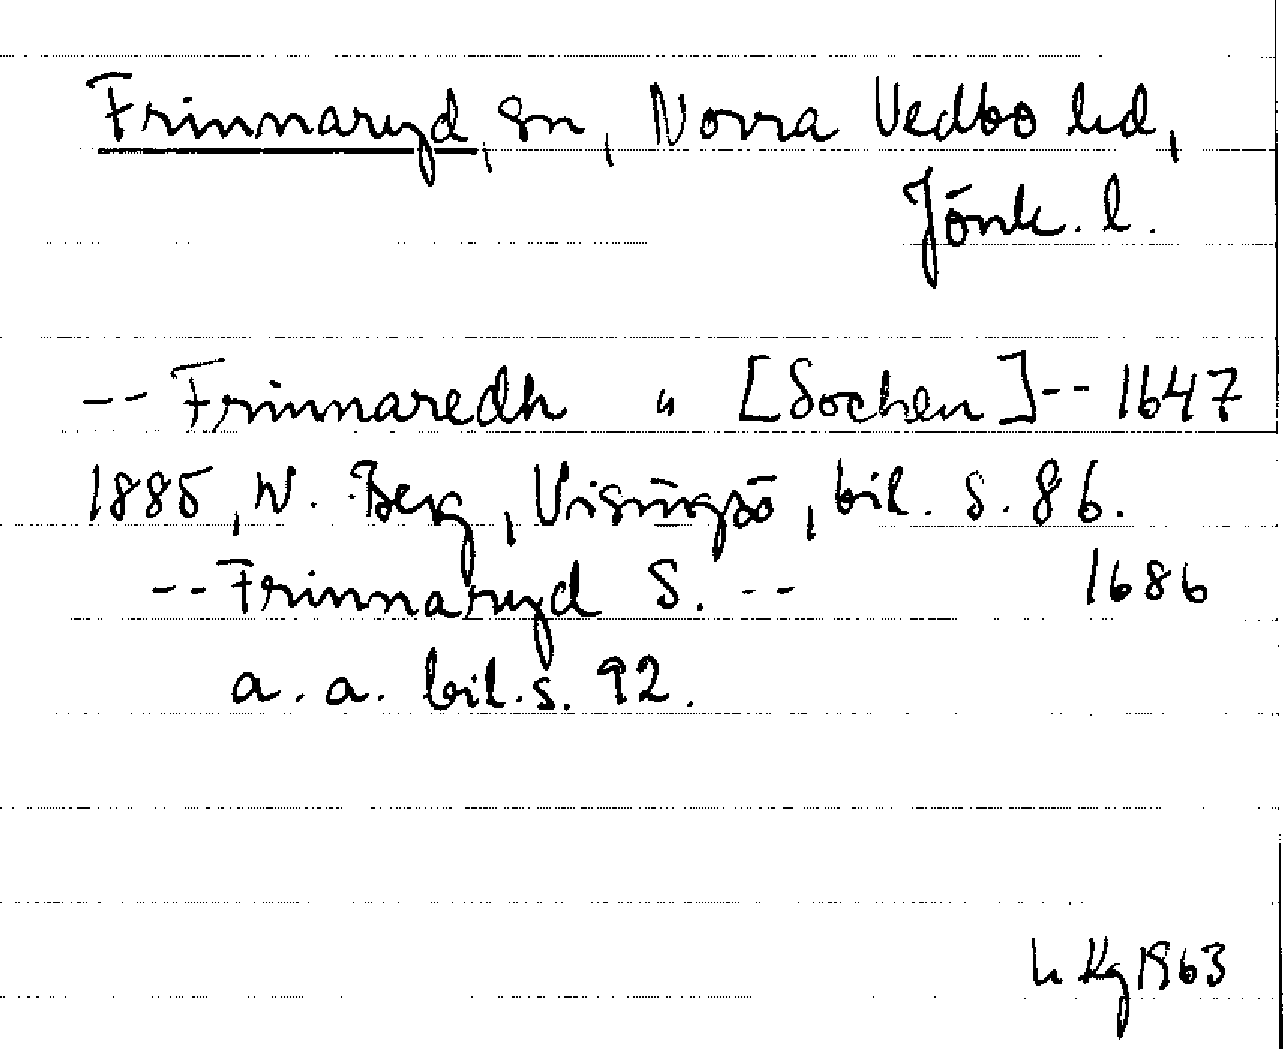 Frinnaryd, sn, Norra Vedbo hd,
Jönk. l.
-- Frinnaredh " [Sochen] -- 1647
1885, W. Berg, Visingsö, bil. s. 86.
-- Frinnaryd S. -- 1686
a. a. bil. s. 92.
Kg 1963